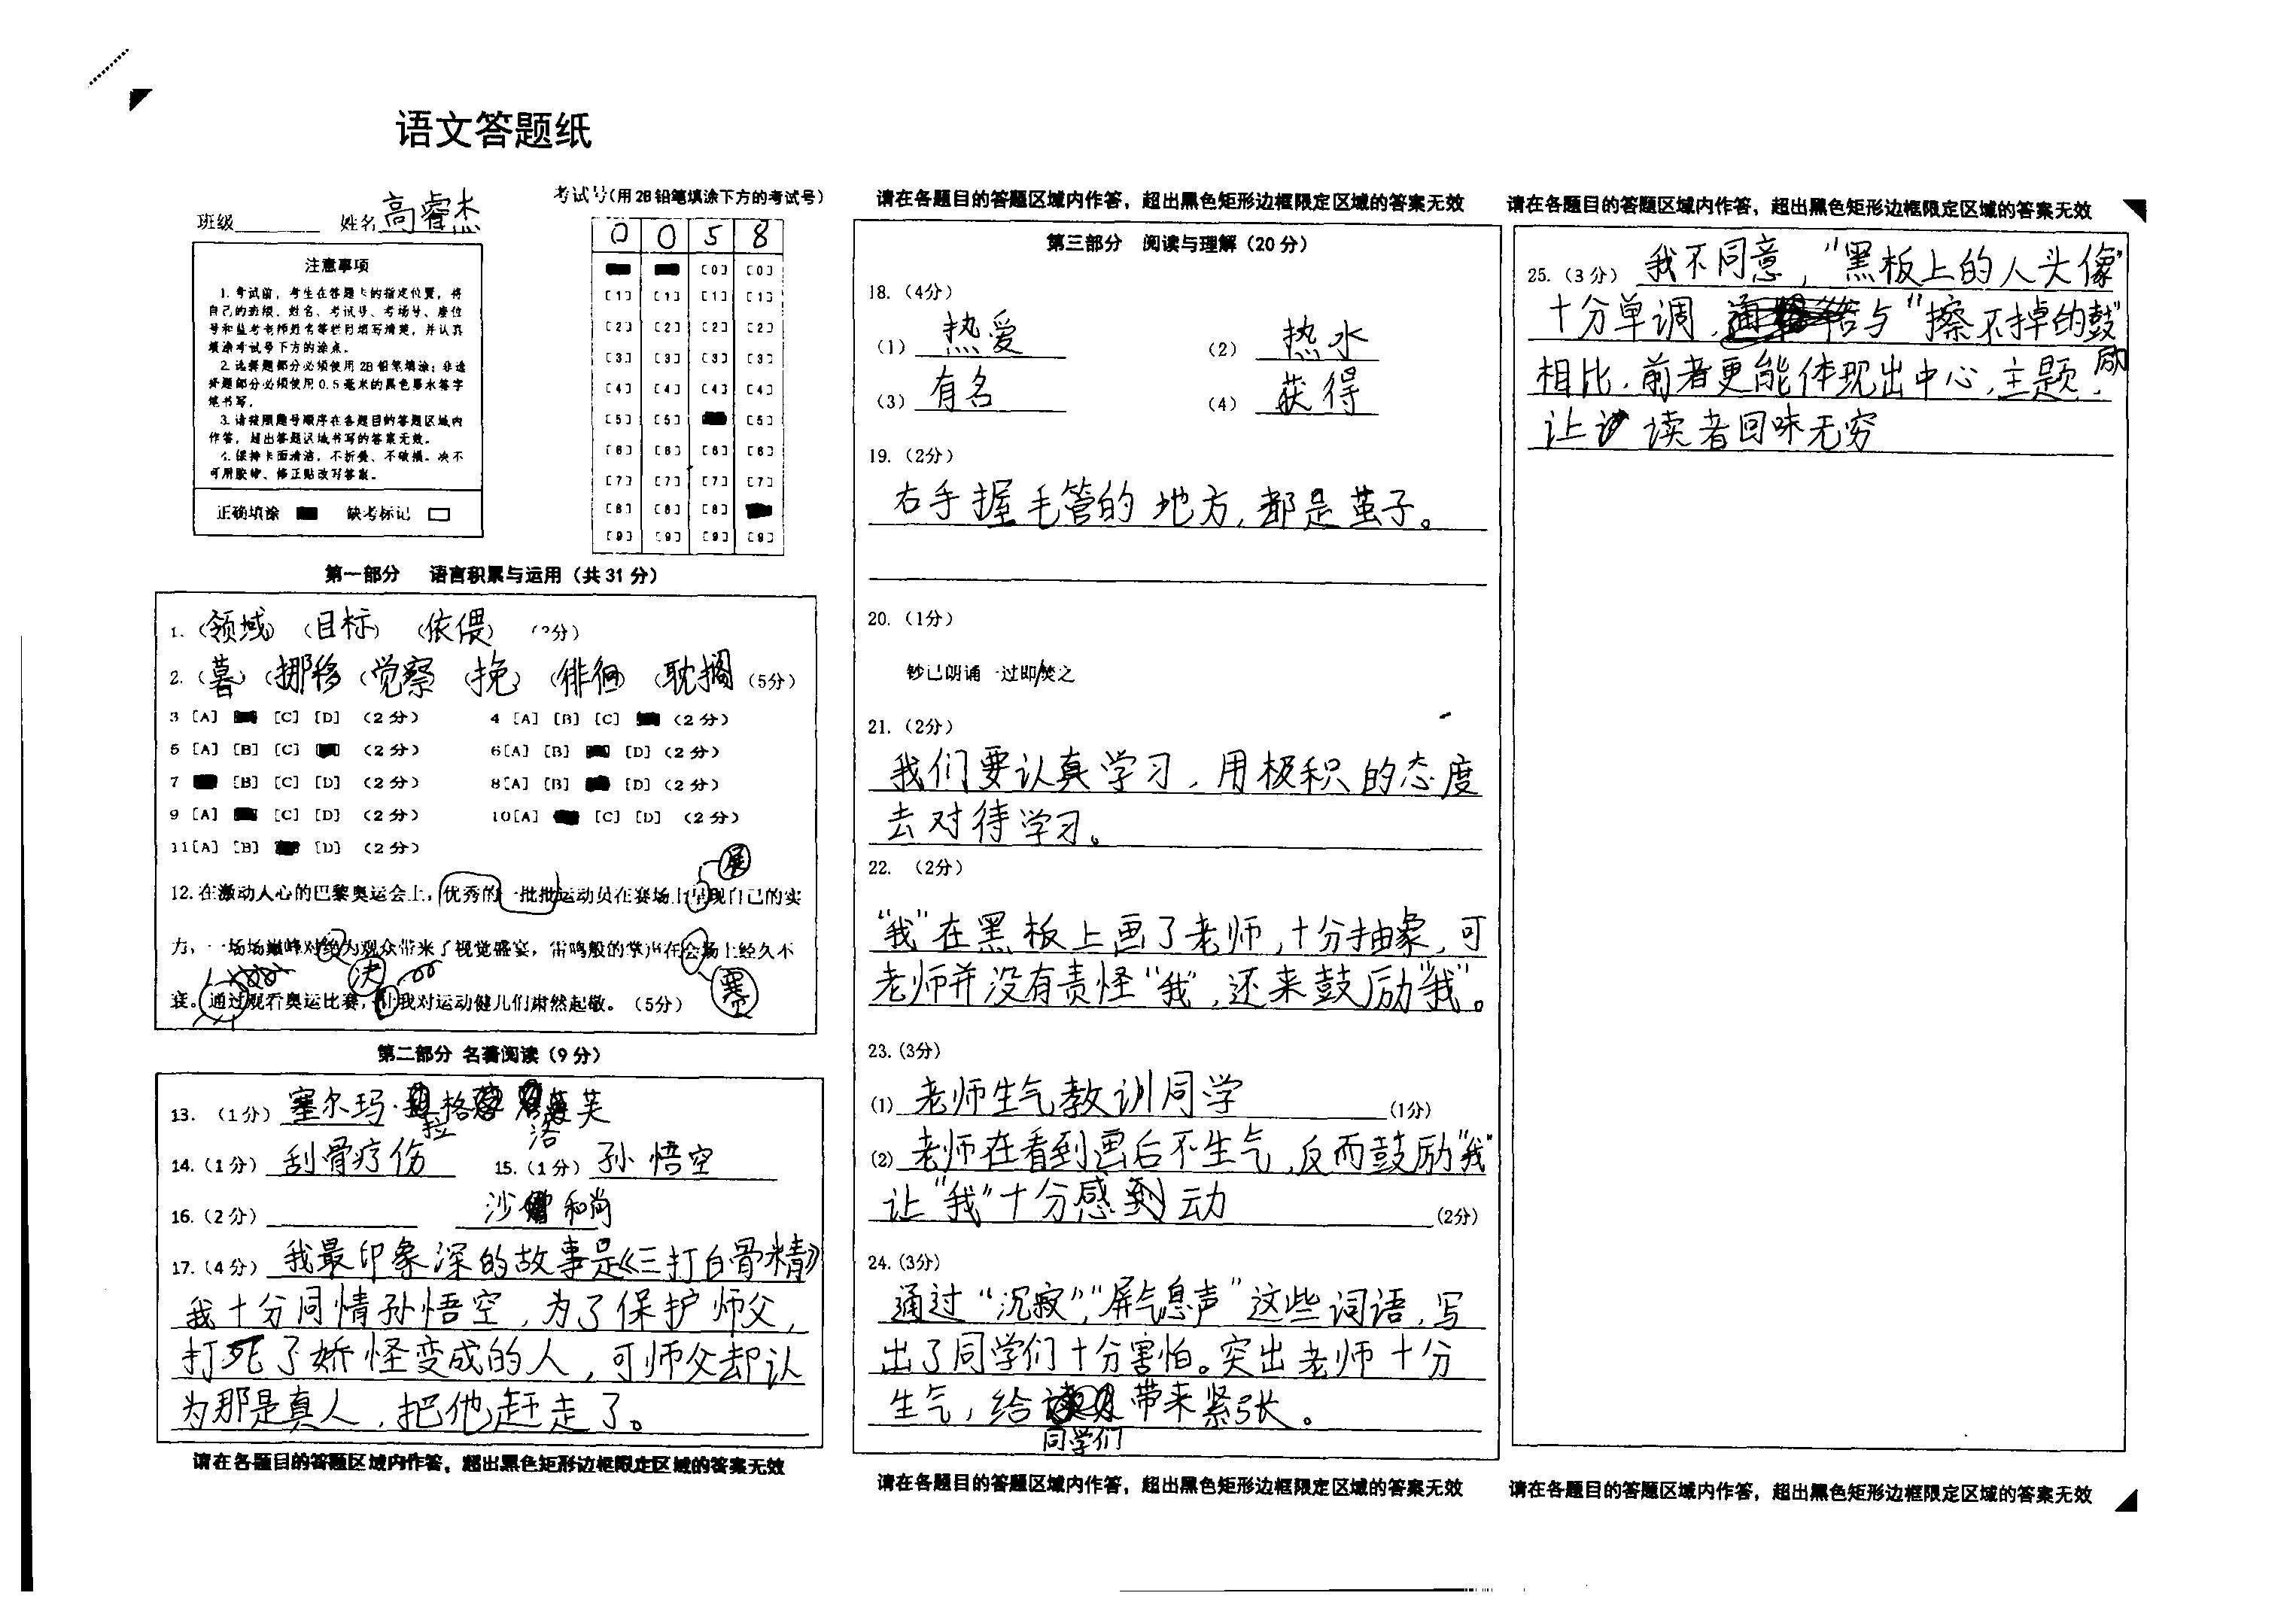 语文答题纸
班级 姓名 高睿杰
考试号(用2B铅笔填涂下方的考试号)
0 0 5 8
注意事项
1. 考试前，考生在答题卡的指定位置，将
自己的班级、姓名、考试号、考场号、座位
号和监考老师姓名等栏目填写清楚，并认真
填涂考试号下方的涂点。
2. 选择题部分必须使用2B铅笔填涂；非选
择题部分必须使用0.5毫米的黑色墨水签字
笔书写。
3. 请按照题号顺序在各题目的答题区域内
作答，超出答题区域书写的答案无效。
4. 保持卡面清洁，不折叠、不破损。决不
可用胶带、修正贴改写答案。
正确填涂 缺考标记
[0] [0]
[1] [1] [1] [1]
[2] [2] [2] [2]
[3] [3] [3] [3]
[4] [4] [4] [4]
[5] [5] [5]
[6] [6] [6] [6]
[7] [7] [7] [7]
[8] [8] [8]
[9] [9] [9] [9]
第一部分 语言积累与运用（共31分）
1.（领域）（目标）（依偎）
2.（暮）（挪移）（觉察）（挽）（徘徊）（耽搁）（5分）
3 [A] [C] [D] （2分） 4 [A] [B] [C] （2分）
5 [A] [B] [C] （2分） 6[A] [B] [D]（2分）
7 [B] [C] [D] （2分） 8[A] [B] [D]（2分）
9 [A] [C] [D] （2分） 10[A] [C] [D] （2分）
11[A] [B] [D] （2分）
展
12.在激动人心的巴黎奥运会上，优秀的一批批运动员在赛场上呈现自己的实
力，一场场巅峰对绝为观众带来了视觉盛宴，雷鸣般的掌声在会场上经久不
决
赛
衰。通过观看奥运比赛，让我对运动健儿们肃然起敬。（5分）
第二部分 名著阅读（9分）
13.（1分）塞尔玛·格 芙
拉 洛
14.（1分）刮骨疗伤 15.（1分）孙悟空
16.（2分） 沙和尚
17.（4分）我最印象深的故事是《三打白骨精》
我十分同情孙悟空，为了保护师父，
打死了娇怪变成的人，可师父却认
为那是真人，把他赶走了。
请在各题目的答题区域内作答，超出黑色矩形边框限定区域的答案无效
请在各题目的答题区域内作答，超出黑色矩形边框限定区域的答案无效
第三部分 阅读与理解（20分）
18.（4分）
（1）热爱 （2）热水
（3）有名 （4）获得
19.（2分）
右手握毛管的地方，都是茧子。
20.（1分）
钞已朗诵一过即/焚之
21.（2分）
我们要认真学习，用极积的态度
去对待学习。
22. （2分）
“我”在黑板上画了老师，十分抽象，可
老师并没有责怪“我”，还来鼓励“我”。
23.(3分)
(1)老师生气教训同学(1分)
(2)老师在看到画后不生气，反而鼓励“我”
让“我”十分感到动(2分)
24.(3分)
通过“沉寂”，“屏气息声”这些词语，写
出了同学们十分害怕。突出老师十分
生气，给 带来紧张。
同学们
请在各题目的答题区域内作答，超出黑色矩形边框限定区域的答案无效
请在各题目的答题区域内作答，超出黑色矩形边框限定区域的答案无效
25.（3分）我不同意，“黑板上的人头像”
十分单调，与“擦不掉的鼓
励
相比，前者更能体现出中心，主题，
让读者回味无穷
请在各题目的答题区域内作答，超出黑色矩形边框限定区域的答案无效